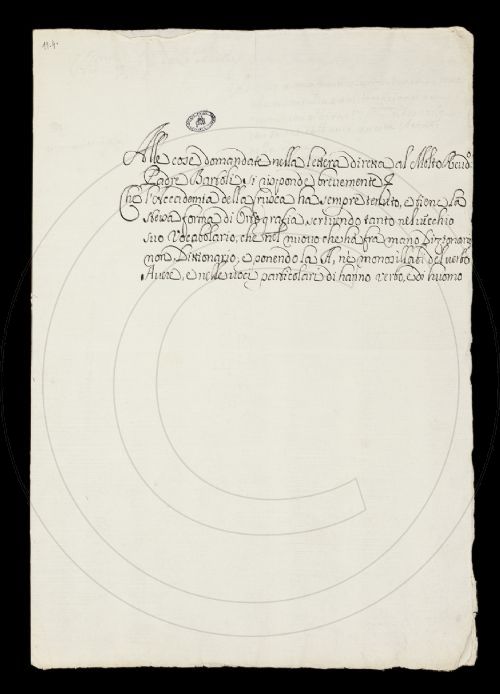 Alle cose domandate nella lettera diretta al Molto Reudo
Padre Bartoli si risponde breuemente
Che l'Accademia della Crusca ha sempre tenuto, e tiene la
stessa forma di Ortografia scriuendo tanto nel uecchio
suo Vocabolario, che nel nuouo che ha fra mano Dizionario
non Dittionario, e ponendo la A, ne monosillabi del uerbo
Auere, e nelle uoci particolari di hanno uerbo, e di huomo